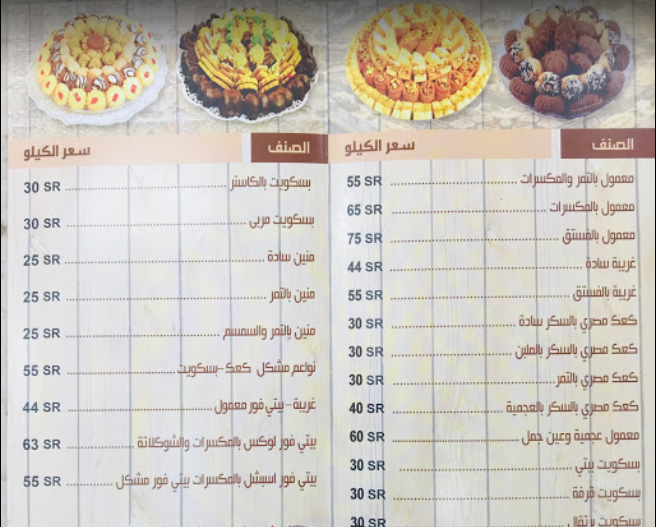 الصنف سعر الكيلو
معمول بالتمر والمكسرات 55 SR
معمول بالمكسرات 65 SR
معمول بالفستق 75 SR
غريبة سادة 44 SR
غريبة بالفستق 55 SR
كعك مصري بالسكر سادة 30 SR
كعك مصري بالسكر بالملبن 30 SR
كعك مصري بالتمر 30 SR
كعك مصري بالسكر بالعجمية 40 SR
معمول عجمية وعين جمل 60 SR
بسكويت بيتي 30 SR
بسكويت قرفة 30 SR
بسكويت برتقال 30 SR
الصنف سعر الكيلو
بسكويت بالكاستر 30 SR
بسكويت مربى 30 SR
منين سادة 25 SR
منين بالتمر 25 SR
منين بالتمر والسمسم 25 SR
نواعم مشكل كعك-بسكويت 55 SR
غريبة-بيتي فور معمول 44 SR
بيتي فور لوكس بالمكسرات والشوكلاتة 63 SR
بيتي فور اسبشل بالمكسرات بيتي فور مشكل 55 SR